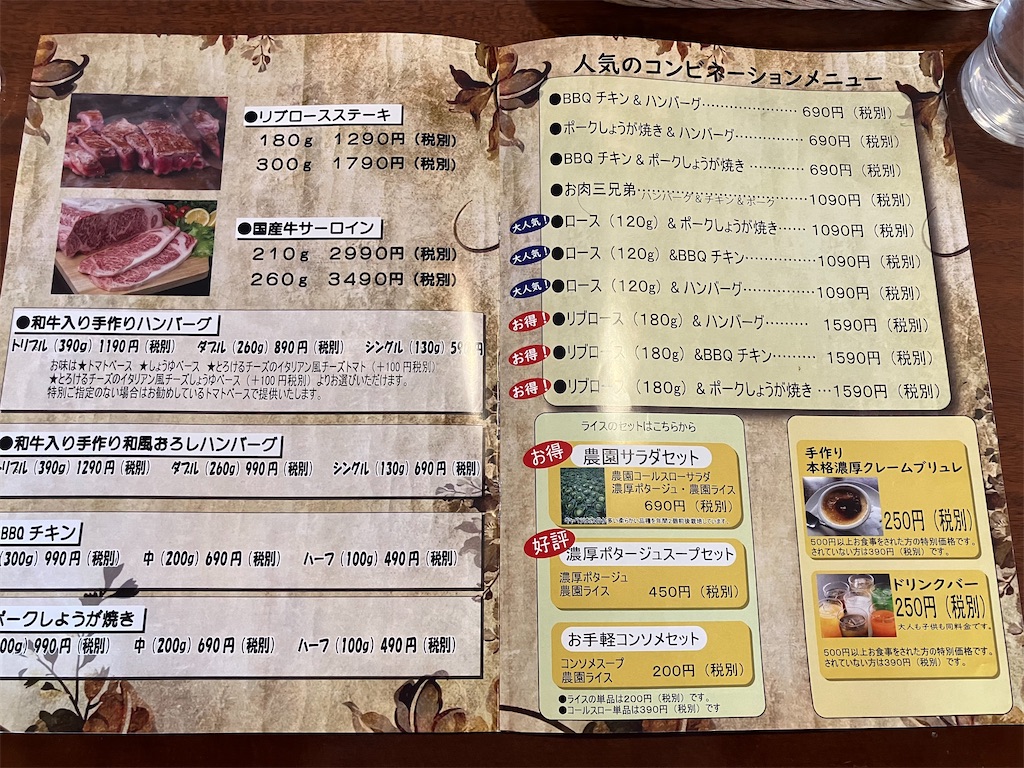 ●リブロースステーキ
180g 1290円（税別）
300g 1790円（税別）
●国産牛サーロイン
210g 2990円（税別）
260g 3490円（税別）
●和牛入り手作りハンバーグ
トリプル（390g）1190円（税別） ダブル（260g）890円（税別） シングル（130g）
お味は★トマトベース ★しょうゆベース ★とろけるチーズのイタリアン風チーズトマト（＋100円税別）
★とろけるチーズのイタリアン風チーズしょうゆベース（＋100円税別）よりお選びいただけます。
特別ご指定のない場合はお勧めしているトマトベースで提供いたします。
●和牛入り手作り和風おろしハンバーグ
トリプル（390g）1290円（税別） ダブル（260g）990円（税別） シングル（130g）690円（税別）
BBQ チキン
（300g）990円（税別） 中（200g）690円（税別） ハーフ（100g）490円（税別）
ポークしょうが焼き
00g）990円（税別） 中（200g）690円（税別） ハーフ（100g）490円（税別）
人気のコンビネーションメニュー
●BBQ チキン＆ハンバーグ………………… 690円（税別）
●ポークしょうが焼き＆ハンバーグ…………… 690円（税別）
●BBQ チキン＆ポークしょうが焼き ………… 690円（税別）
●お肉三兄弟…ハンバーグ＆チキン＆ポーク……1090円（税別）
大人気！●ロース（120g）＆ポークしょうが焼き…… 1090円（税別）
大人気！●ロース（120g）&BBQ チキン……………1090円（税別）
大人気！●ロース（120g）＆ハンバーグ……………1090円（税別）
お得！●リブロース（180g）＆ハンバーグ……… 1590円（税別）
お得！●リブロー（180g）&BBQ チキン……… 1590円（税別）
お得！●リブロース（180g）＆ポークしょうが焼き …1590円（税別）
ライスのセットはこちらから
お得 農園サラダセット
農園コールスローサラダ
濃厚ポタージュ・農園ライス
690円（税別）
好評 濃厚ポタージュスープセット
濃厚ポタージュ
農園ライス 450円（税別）
お手軽コンソメセット
コンソメスープ
農園ライス 200円（税別）
●ライスの単品は200円（税別）です。
●コールスロー単品は390円（税別）です
手作り
本格濃厚クレームブリュレ
250円（税別）
500円以上お食事をされた方の特別価格です。
されていない方は390円（税別）です。
ドリンクバー
250円（税別）
大人も子供も同料金です。
500円以上お食事をされた方の特別価格です。
されていない方は390円（税別）です。